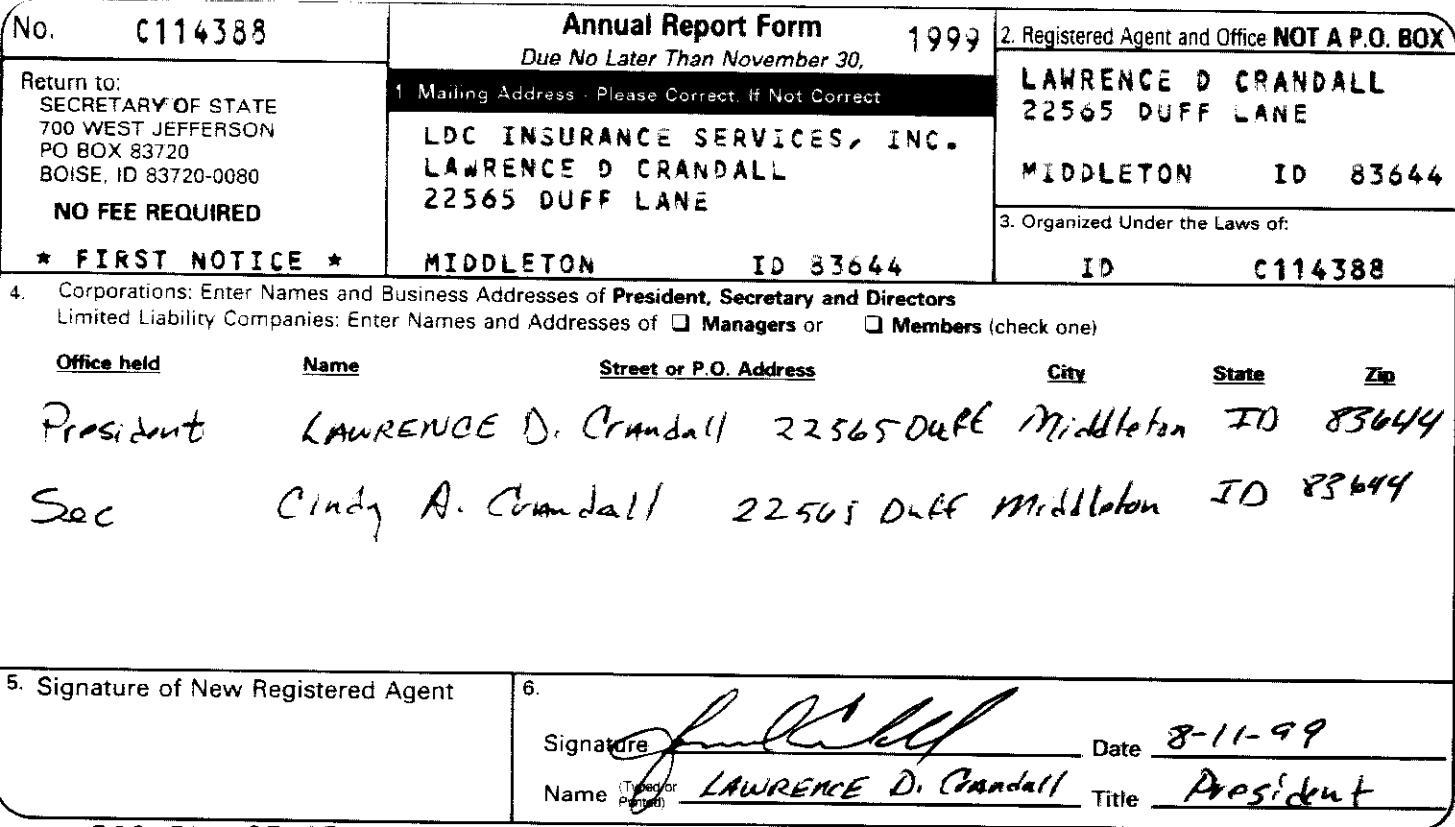 No. C114388
Annual Report Form 1999
Due No Later Than November 30,
Return to:
SECRETARY OF STATE
700 WEST JEFFERSON
PO BOX 83720
BOISE, ID 83720-0080
NO FEE REQUIRED
* FIRST NOTICE *
1 Mailing Address - Please Correct, If Not Correct
LDC INSURANCE SERVICES, INC.
LAWRENCE D CRANDALL
22565 DUFF LANE
MIDDLETON ID 83644
2. Registered Agent and Office NOT A P.O. BOX
LAWRENCE D CRANDALL
22565 DUFF LANE
MIDDLETON ID 83644
3. Organized Under the Laws of:
ID C114388
4. Corporations: Enter Names and Business Addresses of President, Secretary and Directors
Limited Liability Companies: Enter Names and Addresses of ❑ Managers or ❑ Members (check one)
Office held Name Street or P.O. Address City State Zip
President LAWRENCE D. Crandall 22565 Duff Middleton ID 83644
Sec Cindy A. Crandall 22565 Duff Middleton ID 83644
5. Signature of New Registered Agent
6.
Signature Date 8-11-99
Name (Typed or Printed) LAWRENCE D. Crandall Title President